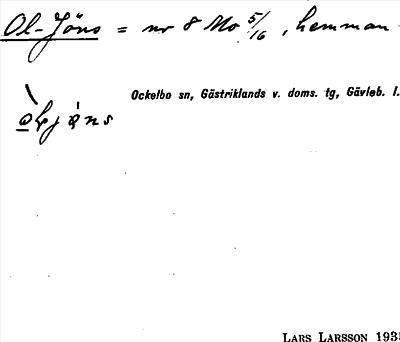 Ol-Jöns = nr 8 Mo 5/16, hemman
Ockelbo sn, Gästriklands v. doms. tg, Gävleb. l.
LARS LARSSON 193